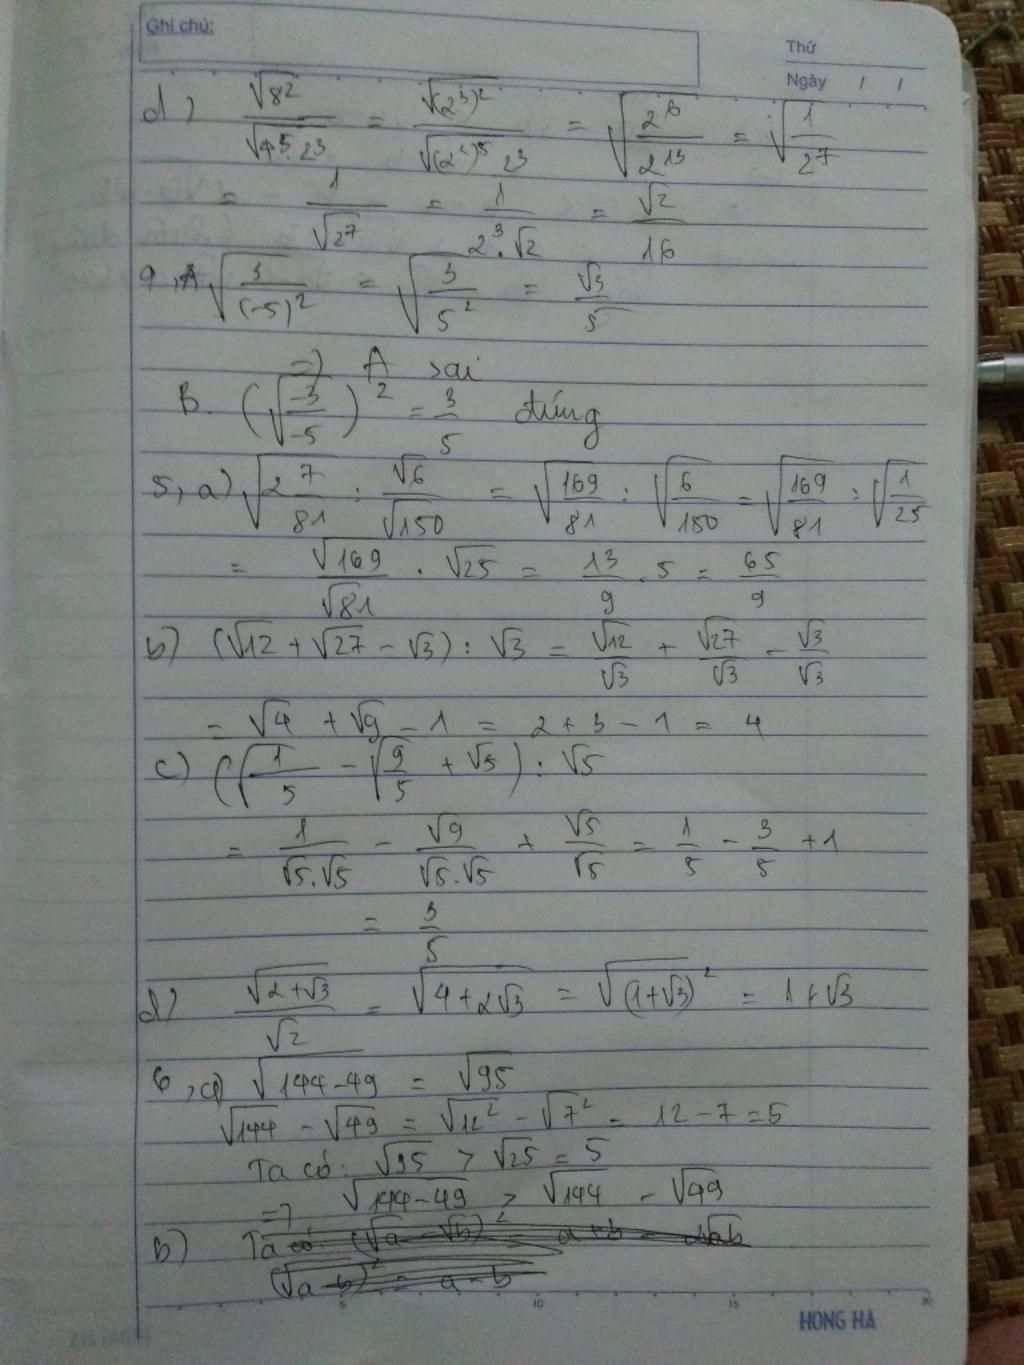 Ghi chú:
Thứ
Ngày / /
d, √8² / √4⁵.2³ = √(2³)² / √(2²)⁵.2³ = √(2⁶/2¹³) = √(1/2⁷)
= 1/√2⁷ = 1/(2³.√2) = √2/16
9, A √(3/(-5)²) = √(3/5²) = √3/5
=> A sai
B. (√(-3/-5))² = 3/5 đúng
5, a) √(2 7/81) : √6/√150 = √(169/81) : √(6/150) = √(169/81) : √(1/25)
= √169/√81 . √25 = 13/9 . 5 = 65/9
b) (√12 + √27 - √3) : √3 = √12/√3 + √27/√3 - √3/√3
= √4 + √9 - 1 = 2 + 3 - 1 = 4
c) (√(1/5) - √(9/5) + √5) : √5
= 1/(√5.√5) - √9/(√5.√5) + √5/√5 = 1/5 - 3/5 + 1
= 3/5
d) √(2+√3)/√2 = √(4+2√3) = √(1+√3)² = 1+√3
6, a) √(144-49) = √95
√144 - √49 = √12² - √7² = 12 - 7 = 5
Ta có: √95 > √25 = 5
=> √(144-49) > √144 - √49
b) Ta có: (√a - √b)² = a + b - 2√ab
(√(a-b))² = a - b
5 10 15 20
HONG HA